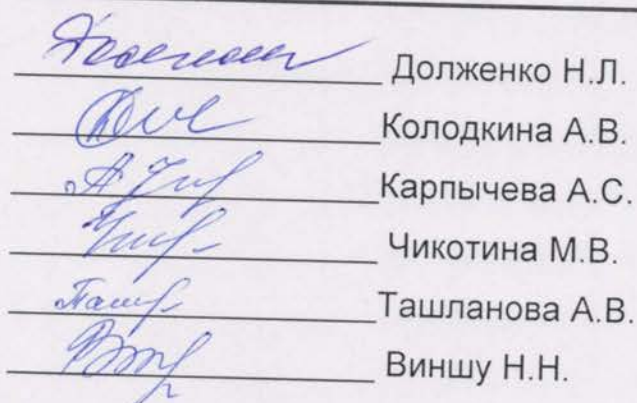 Долженко Н.Л.
Колодкина А.В.
Карпычева А.С.
Чикотина М.В.
Ташланова А.В.
Виншу Н.Н.